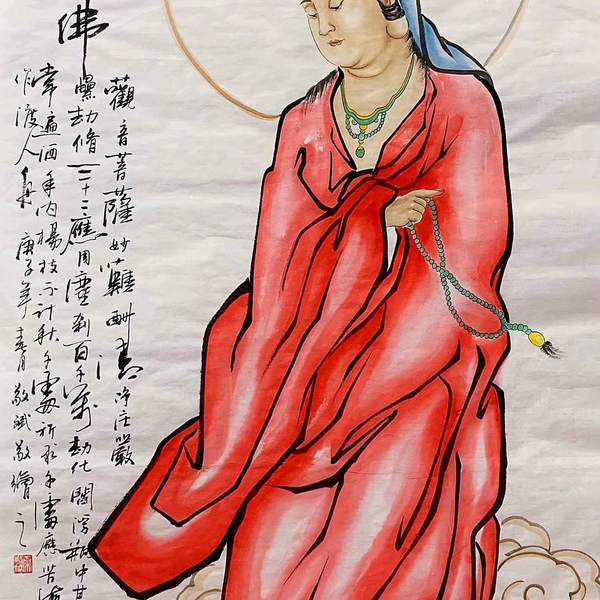 佛
觀音菩薩妙難酬清净庄嚴
劫脩三十二應周塵刹百千萬劫化閻浮瓶中甘
常遍洒手内楊枝不計秋千處祈求千處應苦海
作渡人舟 庚子年春月 敬斌敬繪之